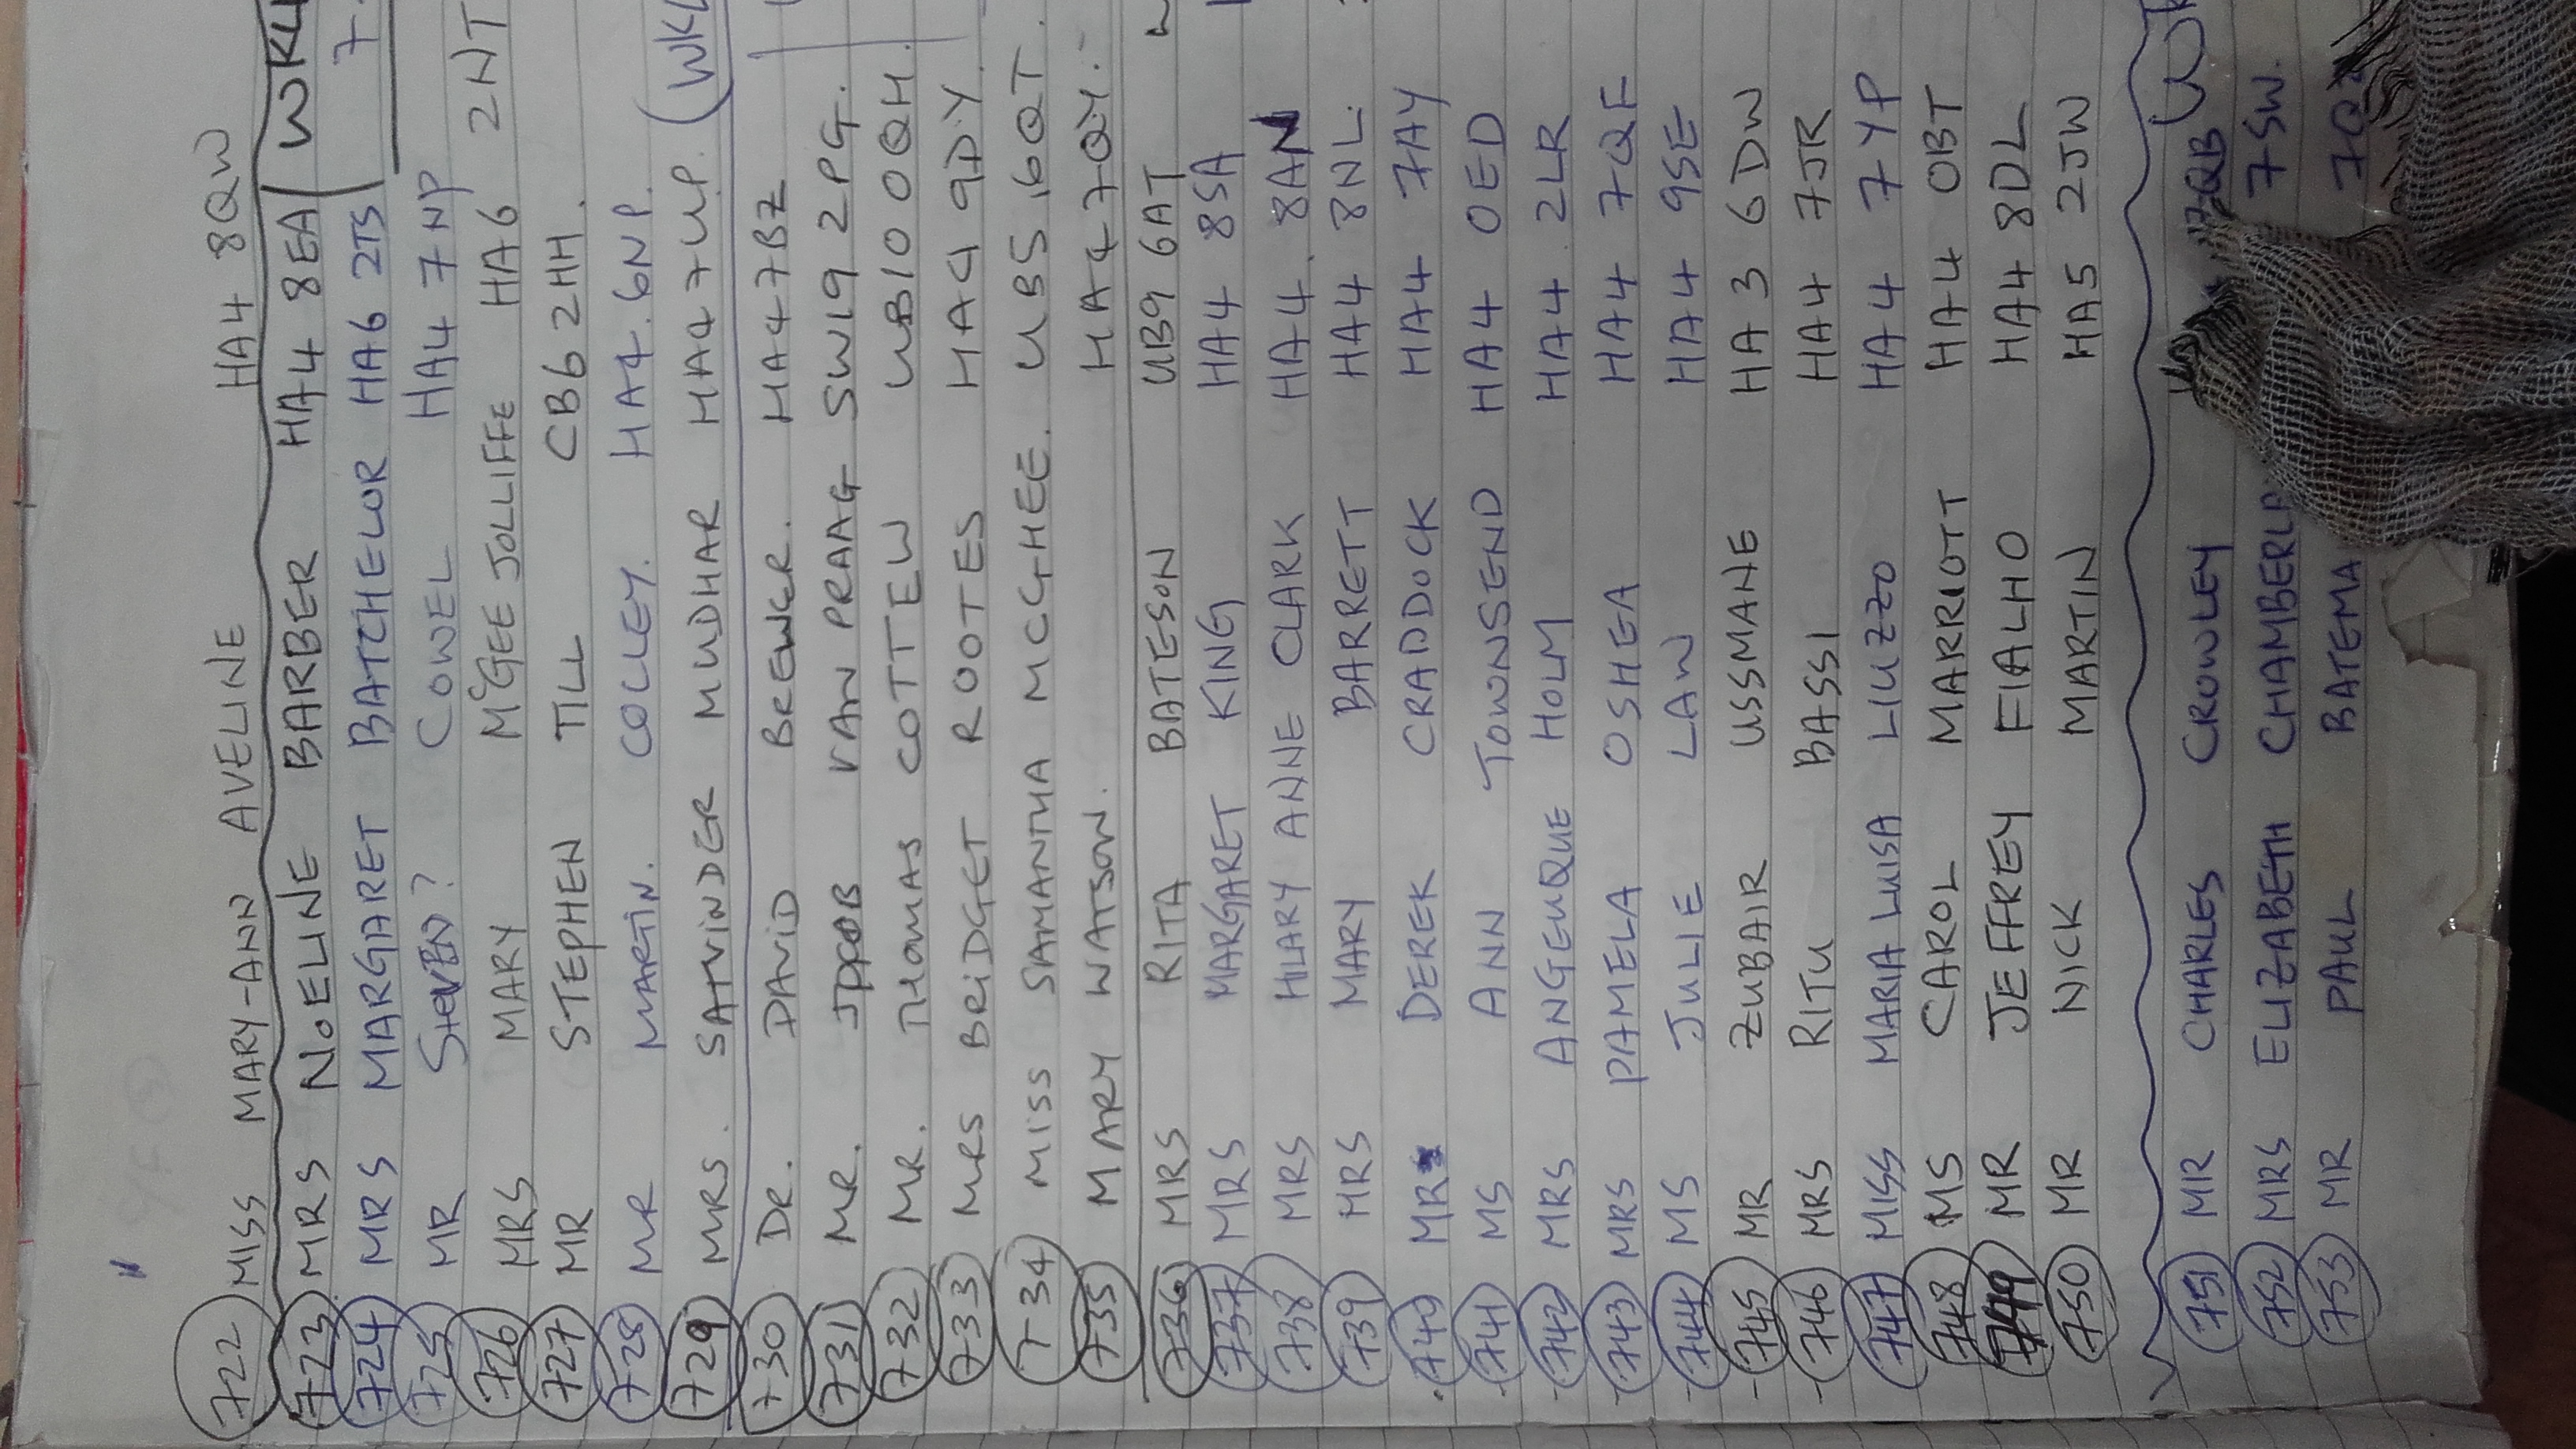 722 MISS MARY-ANN AVELINE HA4 8QW
723 MRS NOELINE BARBER HA4 8EA WKL
724 MRS MARGARET BATCHELOR HA6 2TS 7
725 MR STEVEN? COWEL HA4 7NP
726 MRS MARY McGEE JOLLIFFE HA6 2NT
727 MR STEPHEN TILL CB6 2HH.
728 MR MARTIN. COLLEY. HA4. 6NP.
729 MRS. SATVINDER MUDHAR HA4 7UP. (WKL
730 DR. DAVID BREWER. HA4 7BZ
731 MR. JACOB VAN PRAAG SW19 2PG.
732 MR. THOMAS COTTEW UB10 0QH.
733 MRS BRIDGET ROOTES HA4 9DY.
734 MISS SAMANTHA MCGHEE. UB5 6QT.
735 MARY WATSON. HA4 7QY.
736 MRS RITA BATESON UB9 6AT
737 MRS MARGARET KING HA4 8SA
738 MRS HILARY ANNE CLARK HA4. 8AN
739 MRS MARY BARRETT HA4 8NL.
740 MR DEREK CRADDOCK HA4 7AY
741 MS ANN TOWNSEND HA4 0ED
742 MRS ANGELIQUE HOLM HA4 2LR
743 MRS PAMELA OSHEA HA4 7QF
744 MS JULIE LAW HA4 9SE
745 MR ZUBAIR USSMANE HA3 6DW
746 MRS RITU BASSI HA4 7JR
747 MISS MARIA LUISA LIUZZO HA4 7YP
748 MS CAROL MARRIOTT HA4 0BT
749 MR JEFFREY FIALHO HA4 8DL
750 MR NICK MARTIN HA5 2JW
751 MR CHARLES CROWLEY 7QB WK
752 MRS ELIZABETH CHAMBERLA 7SW.
753 MR PAUL BATEMA